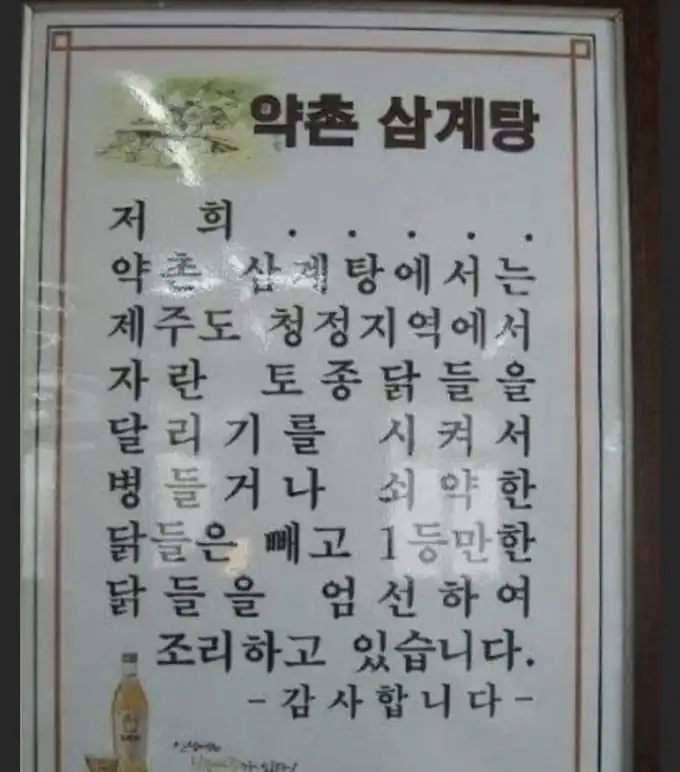 약촌 삼계탕
저 희 . . . . .
약촌 삼계탕에서는
제주도 청정지역에서
자란 토종닭들을
달리기를 시켜서
병들거나 쇠약한
닭들은 빼고 1등만한
닭들을 엄선하여
조리하고 있습니다.
-감사합니다-